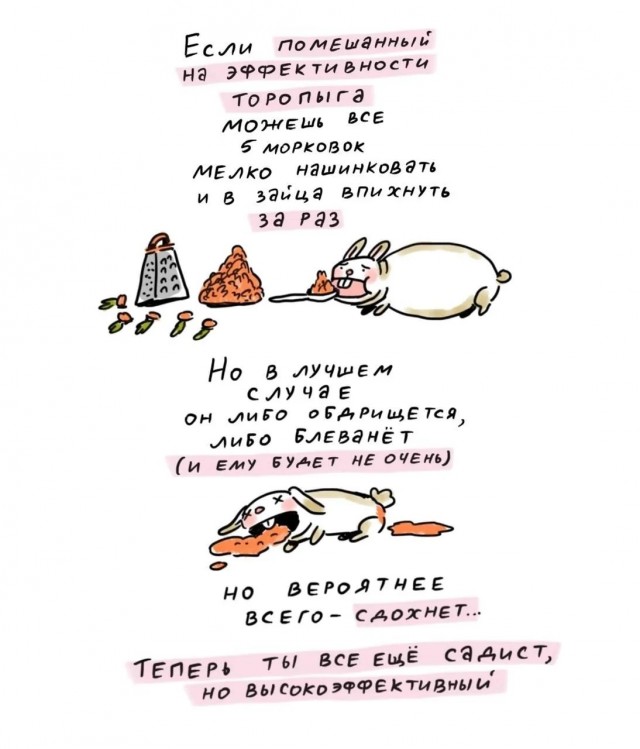 Если помешанный
на эффективности
торопыга
можешь все
5 морковок
мелко нашинковать
и в зайца впихнуть
за раз
Но в лучшем
случае
он либо обдрищется,
либо блеванёт
(и ему будет не очень)
но вероятнее
всего – сдохнет...
Теперь ты все ещё садист,
но высокоэффективный